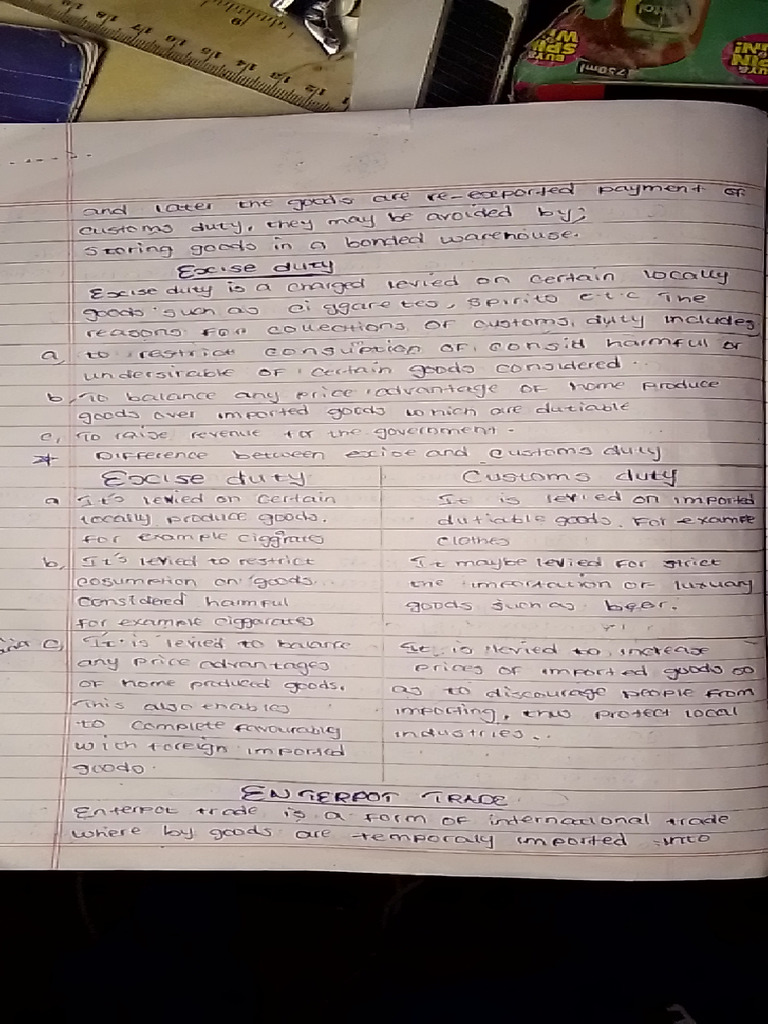 and later the goods are re-exported payment of
customs duty, they may be avoided by;
storing goods in a bonded warehouse.
Excise duty
Excise duty is a charged levied on certain locally
goods such as ciggaretes, spirits e.t.c The
reasons for collections of customs duty includes
a, to restrict consuption of consid harmful or
undersirable of certain goods considered.
b, To balance any price advantage of home produce
goods over imported goods which are dutiable
c, To raise revenue for the government.
* Difference between excise and customs duty
Excise duty
Customs duty
a It's levied on certain
locally produce goods.
for example ciggrates
It is levied on imported
dutiable goods. For example
clothes
b, It's levied to restrict
cosumption on goods
considered harmful
for example ciggarates
It maybe levied for strict
the importation of luxuary
goods such as beer.
c, It is levied to balance
any price advantages
of home produced goods.
This also enables
to complete favourably
with foreign imported
goods.
It is levied to increase
prices of imported goods so
as to discourage people from
importing, thus protect local
industries..
ENTERPOT TRADE
Enterpot trade is a form of international trade
where by goods are temporaly imported into
750ml